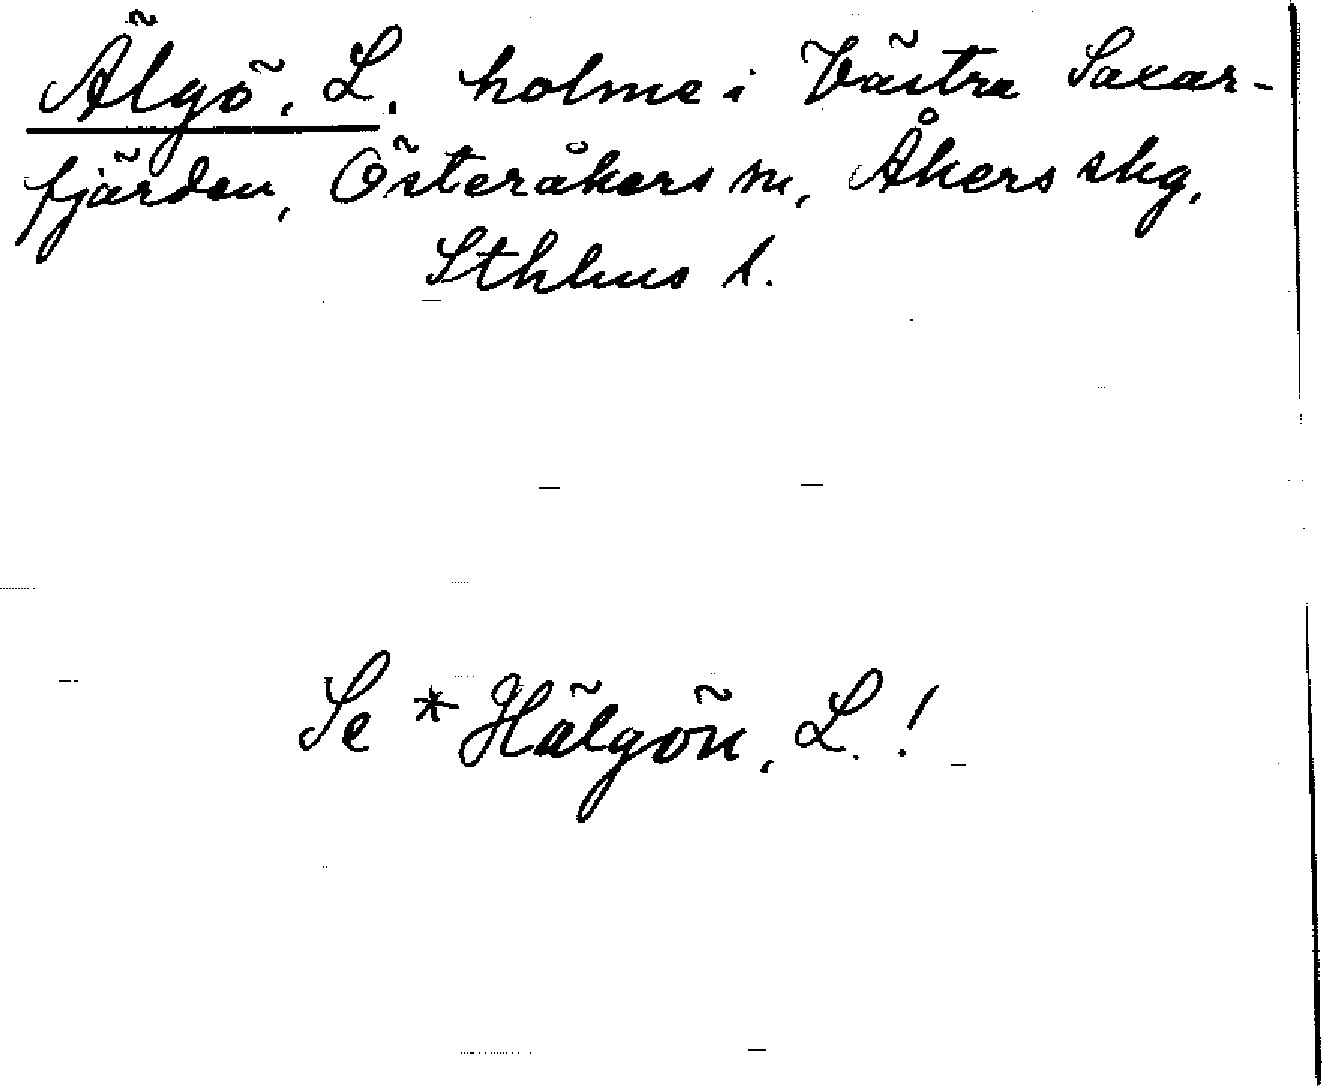 Älgö, L. holme i Västra Saxar-
fjärden, Österåkers sn, Åkers skg,
Sthlms l.
Se * Hälgön, L.!